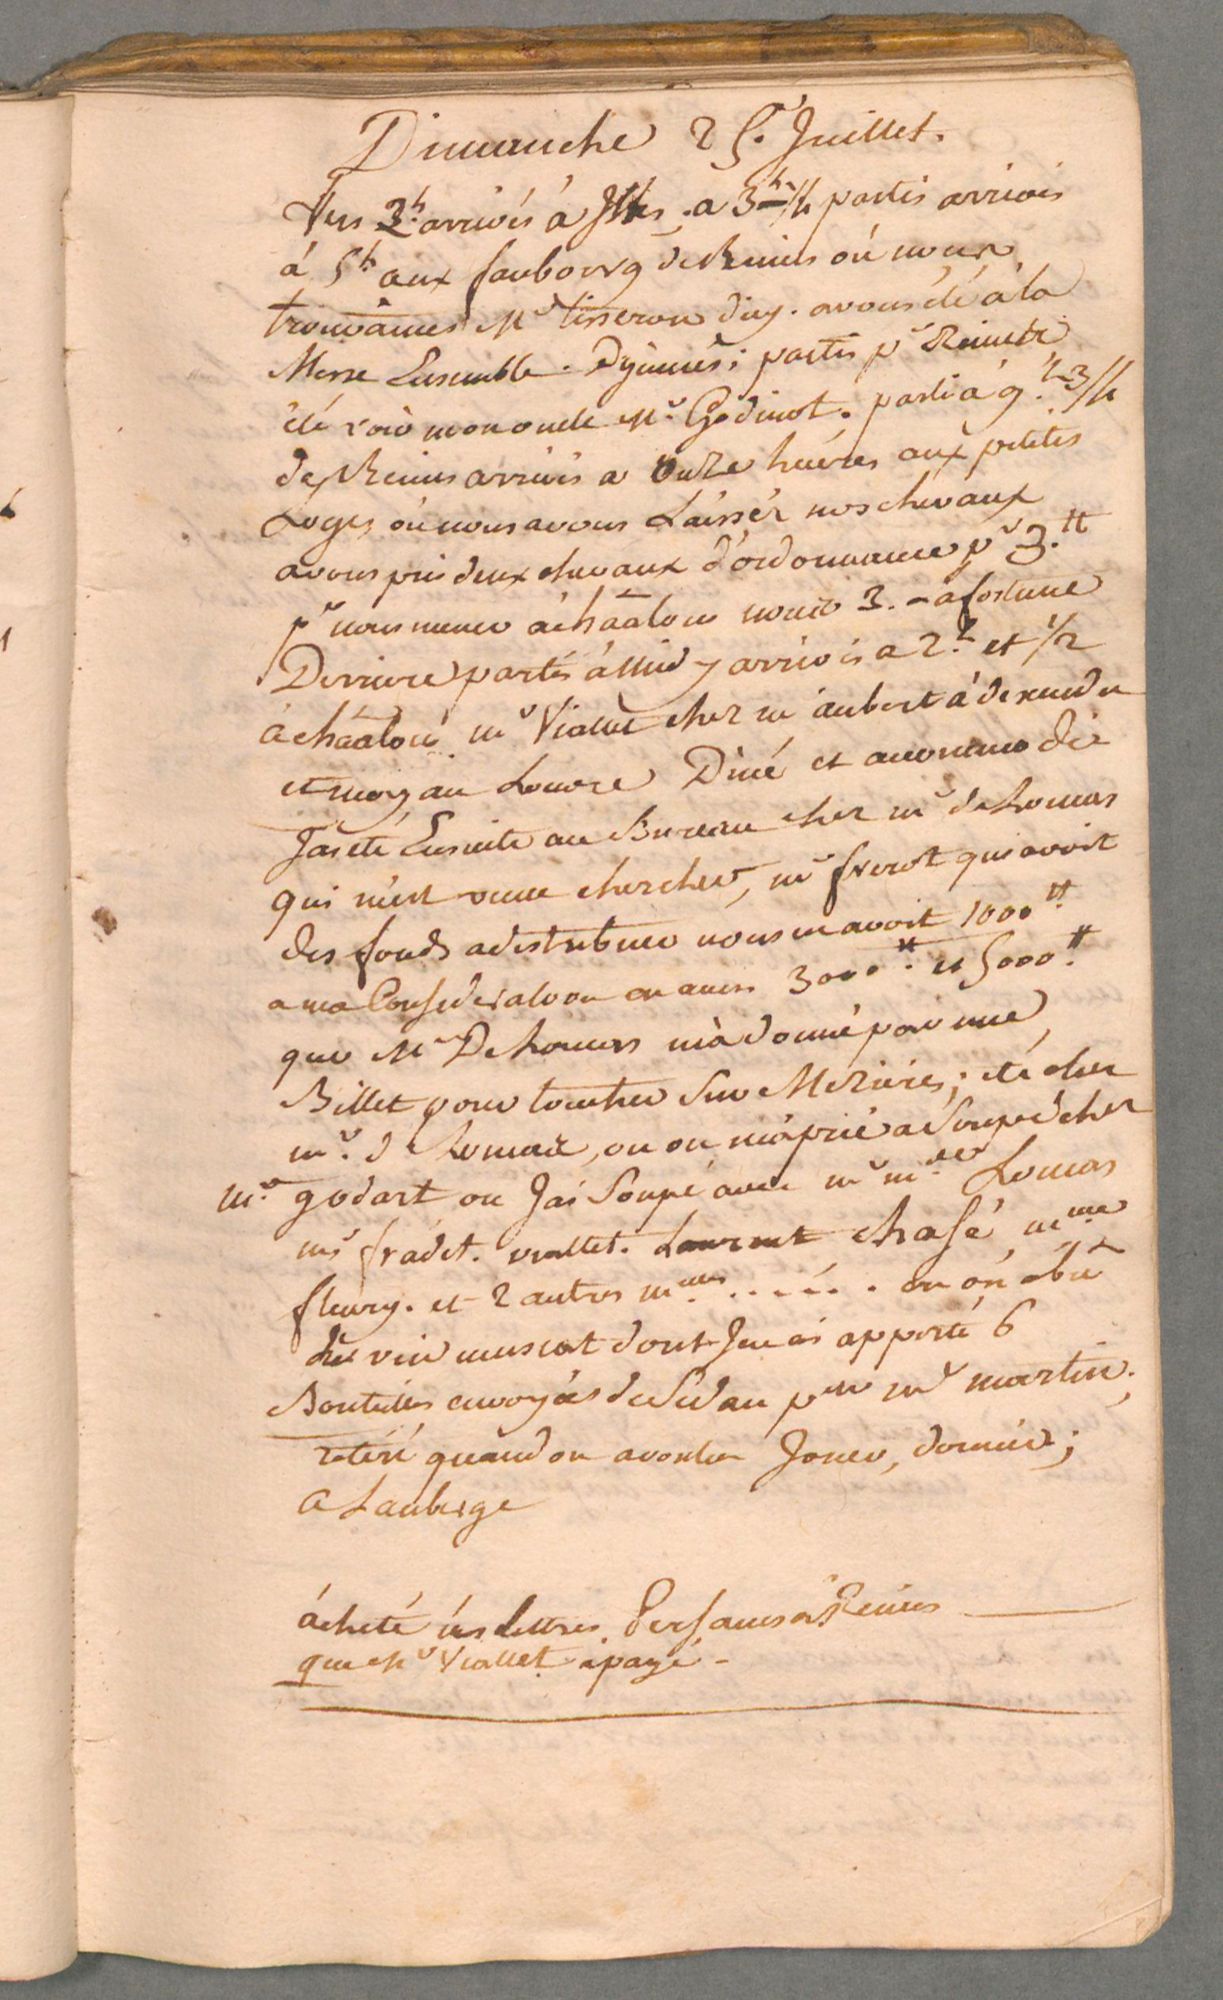 Dimanche 25. Juillet.
Vers 3h. arrivés à Isles. a 3h 1/4 partis arrivés
à 5h aux faubourg de Reims où nous
trouvâmes Mr tisseron d'ay. avons été à la
Messe Ensemble. Dejeunés; partis pr Reims
été voir mon oncle Mr. Godinot. parti à 9h 3/4
de Reims arrivés a Onze heures aux petites
Loges où nous avons Laissér nos chevaux
avons pris deux chevaux d'ordonnance pr 3.tt
pr nous mener à chaalons 3. - à fortune
Derriere partis à Midy arrivés a 2h et 1/2
à chaalons mr Viallet chez mr aubert à descendu
et moy au Louvre Diné et accomodé
J'ai été Ensuite au Bureau chez mr de Lomas
qui m'est venu chercher, mr frerot qui avoit
des fonds a distribuer nous en avoit 1000tt
a ma Consideration en avons 3000tt. et 5000tt.
que Mr De Lomas m'à donné par une
Billet pour toucher Sur Mezieres; été chez
mr. de Lomas, ou on m'a prié a Soupé chez
mr. godart ou J'ai Soupé avec mr Lomas
mr fradet. viallet. Laurent chasé mme
fleury. et 2 autres mmes ..... ou on a bu
du vin muscat dont J'en ai apporté 6
Bouteilles envoyées de Sedan par mr martin.
retiré quand on a voulu Jouer, dormir;
a Lauberge
acheté les Lettres Persannes à Reims
que Mr Viallet a payé -